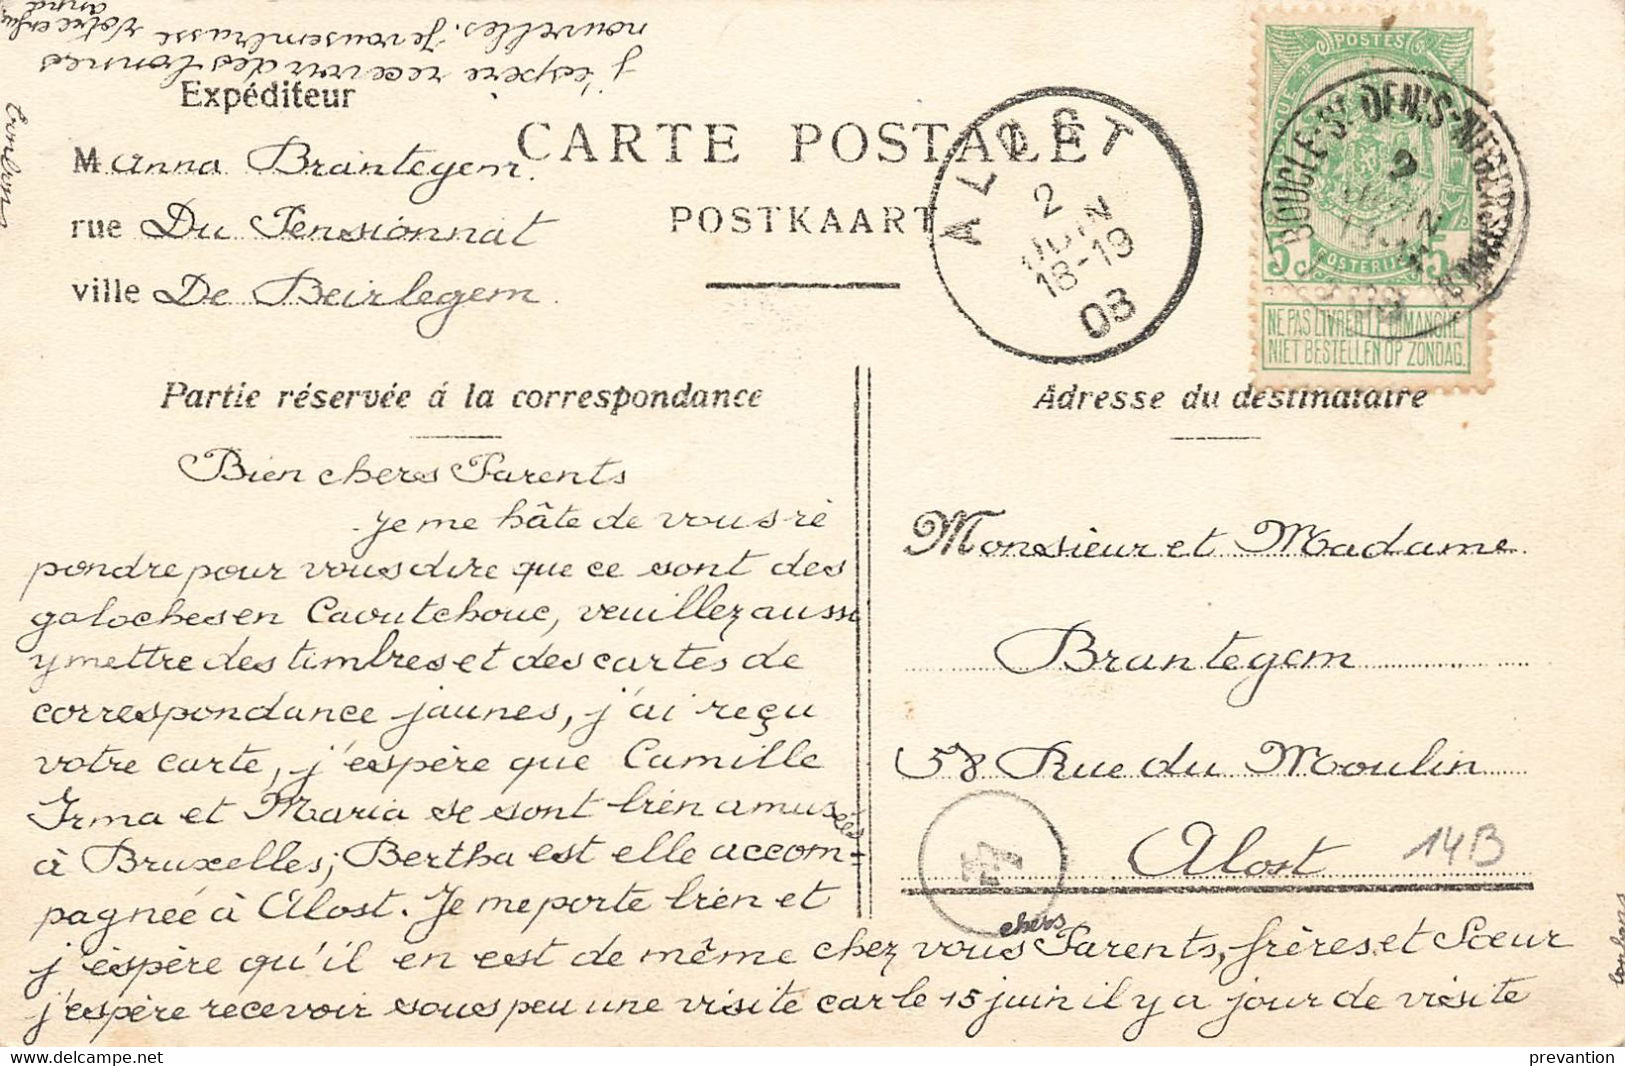 j'espère recevoir des bonnes
nouvelles. Je vous embrasse Votre enfant
anna
Expéditeur
M anna Brantegem.
rue Du Pensionnat
ville De Beirlegem.
CARTE POSTALE
POSTKAART
ALOST
2
JUIN
18-19
08
POSTES
BOUCLE-ST DENIS-
5 5
NE PAS LIVRER LE DIMANCHE.
NIET BESTELLEN OP ZONDAG.
Partie réservée á la correspondance
Bien cheres Parents
Je me hâte de vous ré
pondre pour vous dire que ce sont des
galoches en Caoutchouc, veuillez aussi
y mettre des timbres et des cartes de
correspondance jaunes, j'ai reçu
votre carte, j'espère que Camille
Irma et Maria se sont bien amusées
à Bruxelles; Bertha est elle accom-
pagnée à Alost. Je me porte bien et
j'espère qu'il en est de même chez vous chers Parents, frères et Sœur
j'espère recevoir sous peu une visite car le 15 juin il y a jour de visite
Adresse du destinataire
Monsieur et Madame
Brantegem
58 Rue du Moulin
Alost
14B
prevantion